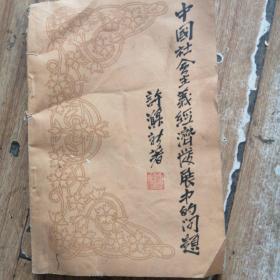 中國社會主義經濟發展中的問題
許滌新著